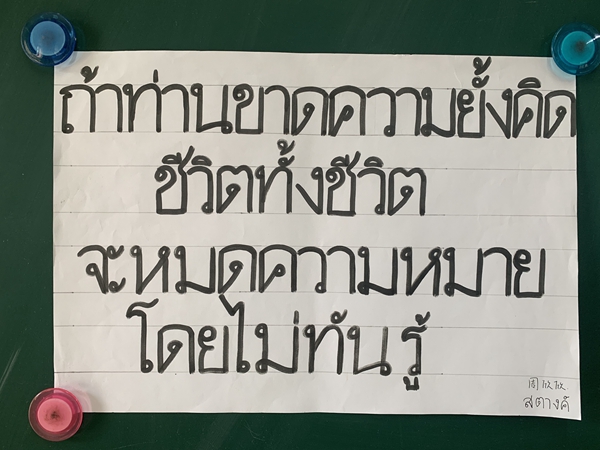 ถ้าท่านขาดความยั้งคิด
ชีวิตทั้งชีวิต
จะหมดความหมาย
โดยไม่ทันรู้
สตางค์